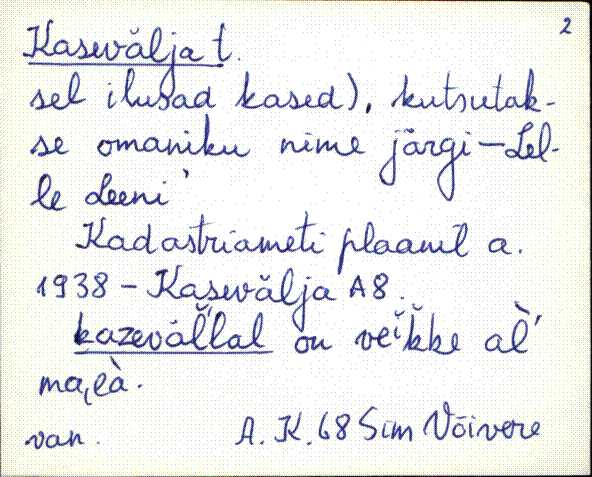 2
Kasevälja t.
sel ilusad kased), kutsutak-
se omaniku nime järgi – Lel-
le Leeni
Kadastriameti plaanil a.
1938 – Kasevälja A8.
on
van. A. K. 68 Sim Võivere